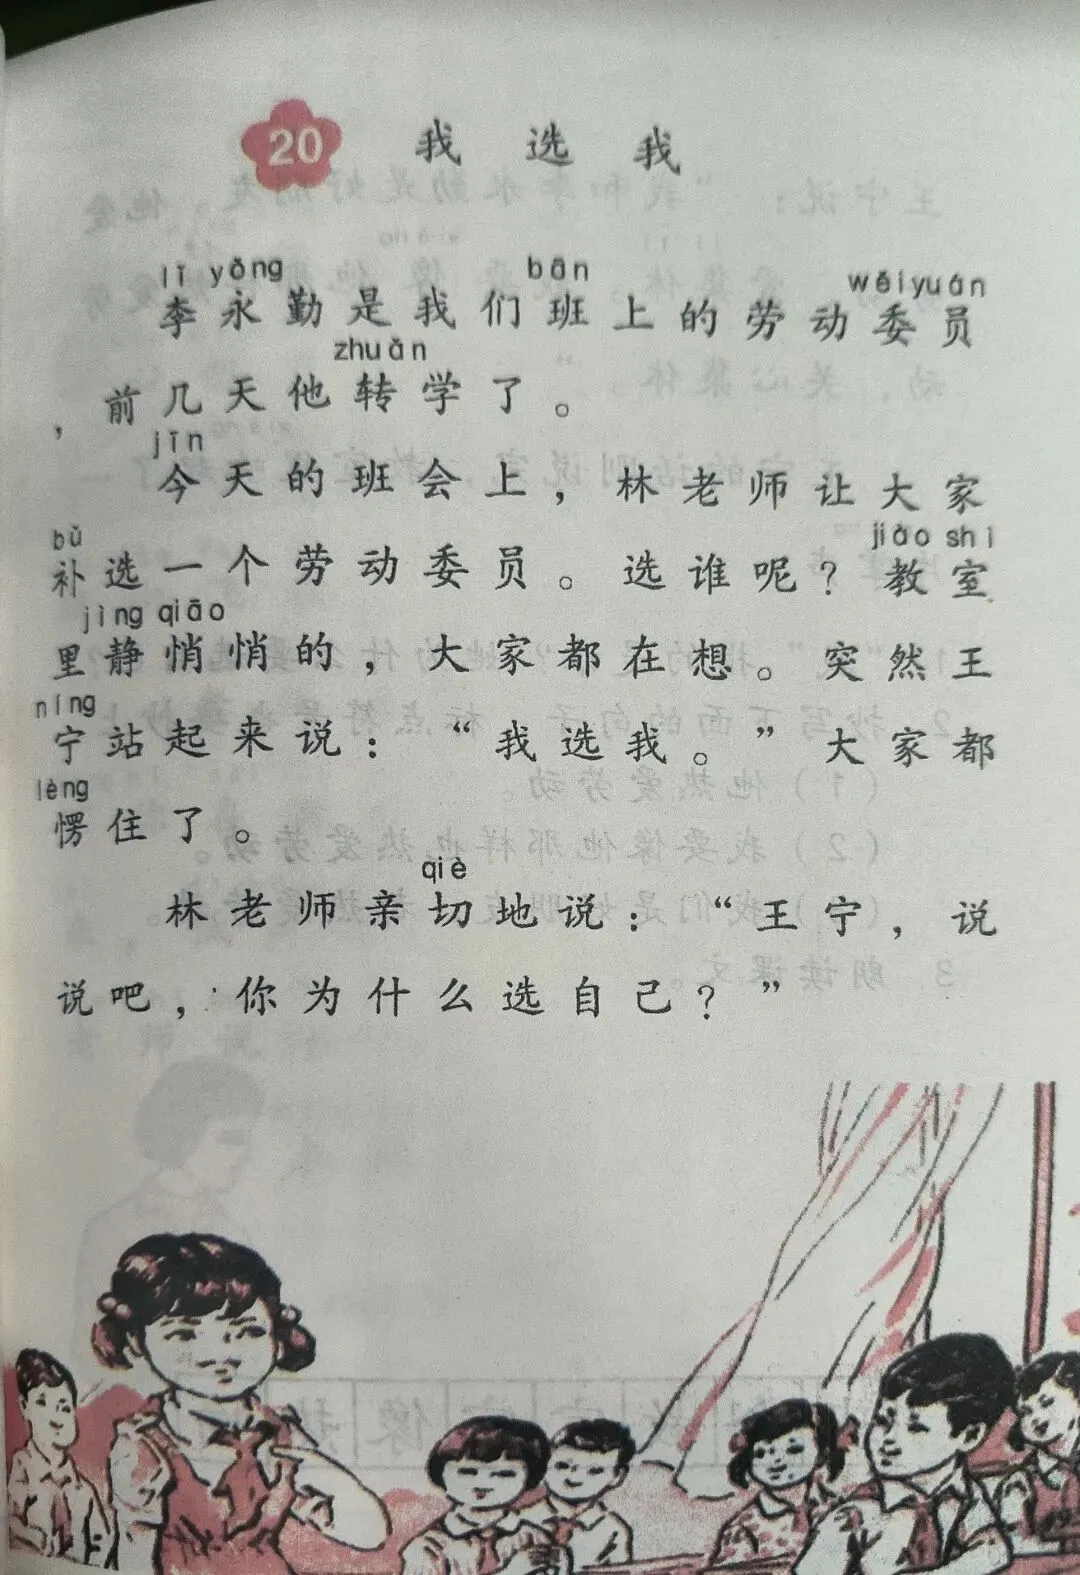 20 我选我
lǐ yǒng bān wěiyuán
李永勤是我们班上的劳动委员
zhuǎn
，前几天他转学了。
jīn
今天的班会上，林老师让大家
bǔ jiào shì
补选一个劳动委员。选谁呢？教室
jìng qiāo
里静悄悄的，大家都在想。突然王
níng
宁站起来说：“我选我。”大家都
lèng
愣住了。
qiè
林老师亲切地说：“王宁，说
说吧，你为什么选自己？”